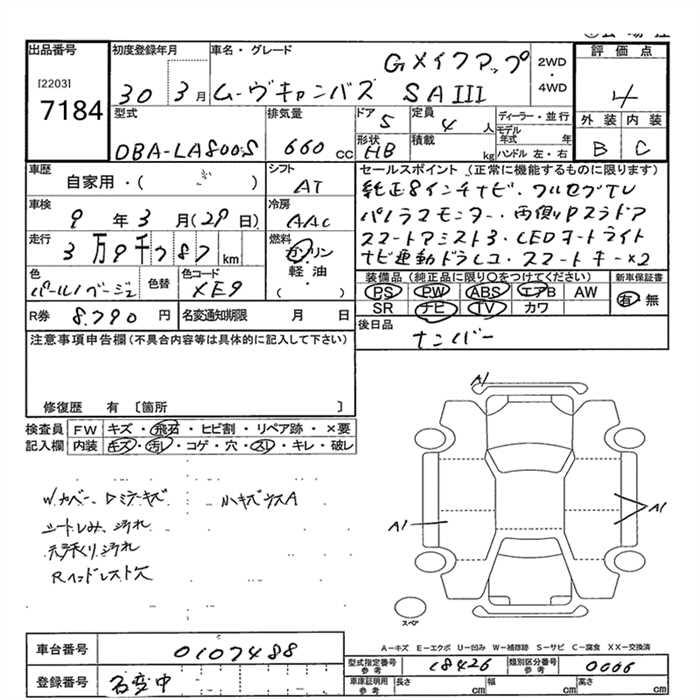 出品番号
[2203]
7184
初度登録年月
30 3月
車名・グレード
Gメイクアップ
ムーヴキャンバス SAIII
2WD
・
4WD
評価点
4
外装 内装
B C
型式
DBA-LA800S
排気量
660 cc
ドア
5
定員
4 人
形状
HB
積載
kg
ディーラー・並行
モデル年式 年
ハンドル 左・右
車歴
自家用・( )
シフト
AT
車検
9年3月(29日)
冷房
AAC
走行
3万9千787km
燃料
ガソリン
軽油
( )
色
パールノベージュ
色替
色コード
XE9
R券 8.790円
名変通知期限 月 日
セールスポイント (正常に機能するものに限ります)
純正8インチナビ・フルセグTV
パノラマモニター・両側Pスラドア
スマートアシスト3・LEDオートライト
ナビ連動ドラレコ・スマートキー×2
装備品(純正品に限り○をつけてください)
新車保証書
PS PW ABS エアB AW
SR ナビ TV カワ
有・無
後日品
ナンバー
注意事項申告欄(不具合内容等は具体的に記入して下さい)
修復歴 有 〔箇所 〕
検査員
記入欄
FW キズ・飛石・ヒビ割・リペア跡・×要
内装 キズ・汚レ・コゲ・穴・スレ・キレ・破レ
Wカバー、Dミラーキズ 小キズウスA
シートしみ、汚れ
天張り汚れ
Rヘッドレスト欠
A1
A1
A1
スペア
A−キズ E−エクボ U−凹み W−補修跡 S−サビ C−腐食 XX−交換済
車台番号 0107488
登録番号 名変中
型式指定番号
参考
18426
類別区分番号
参考
0066
車庫証明用
参考
長さ cm 幅 cm 高さ cm